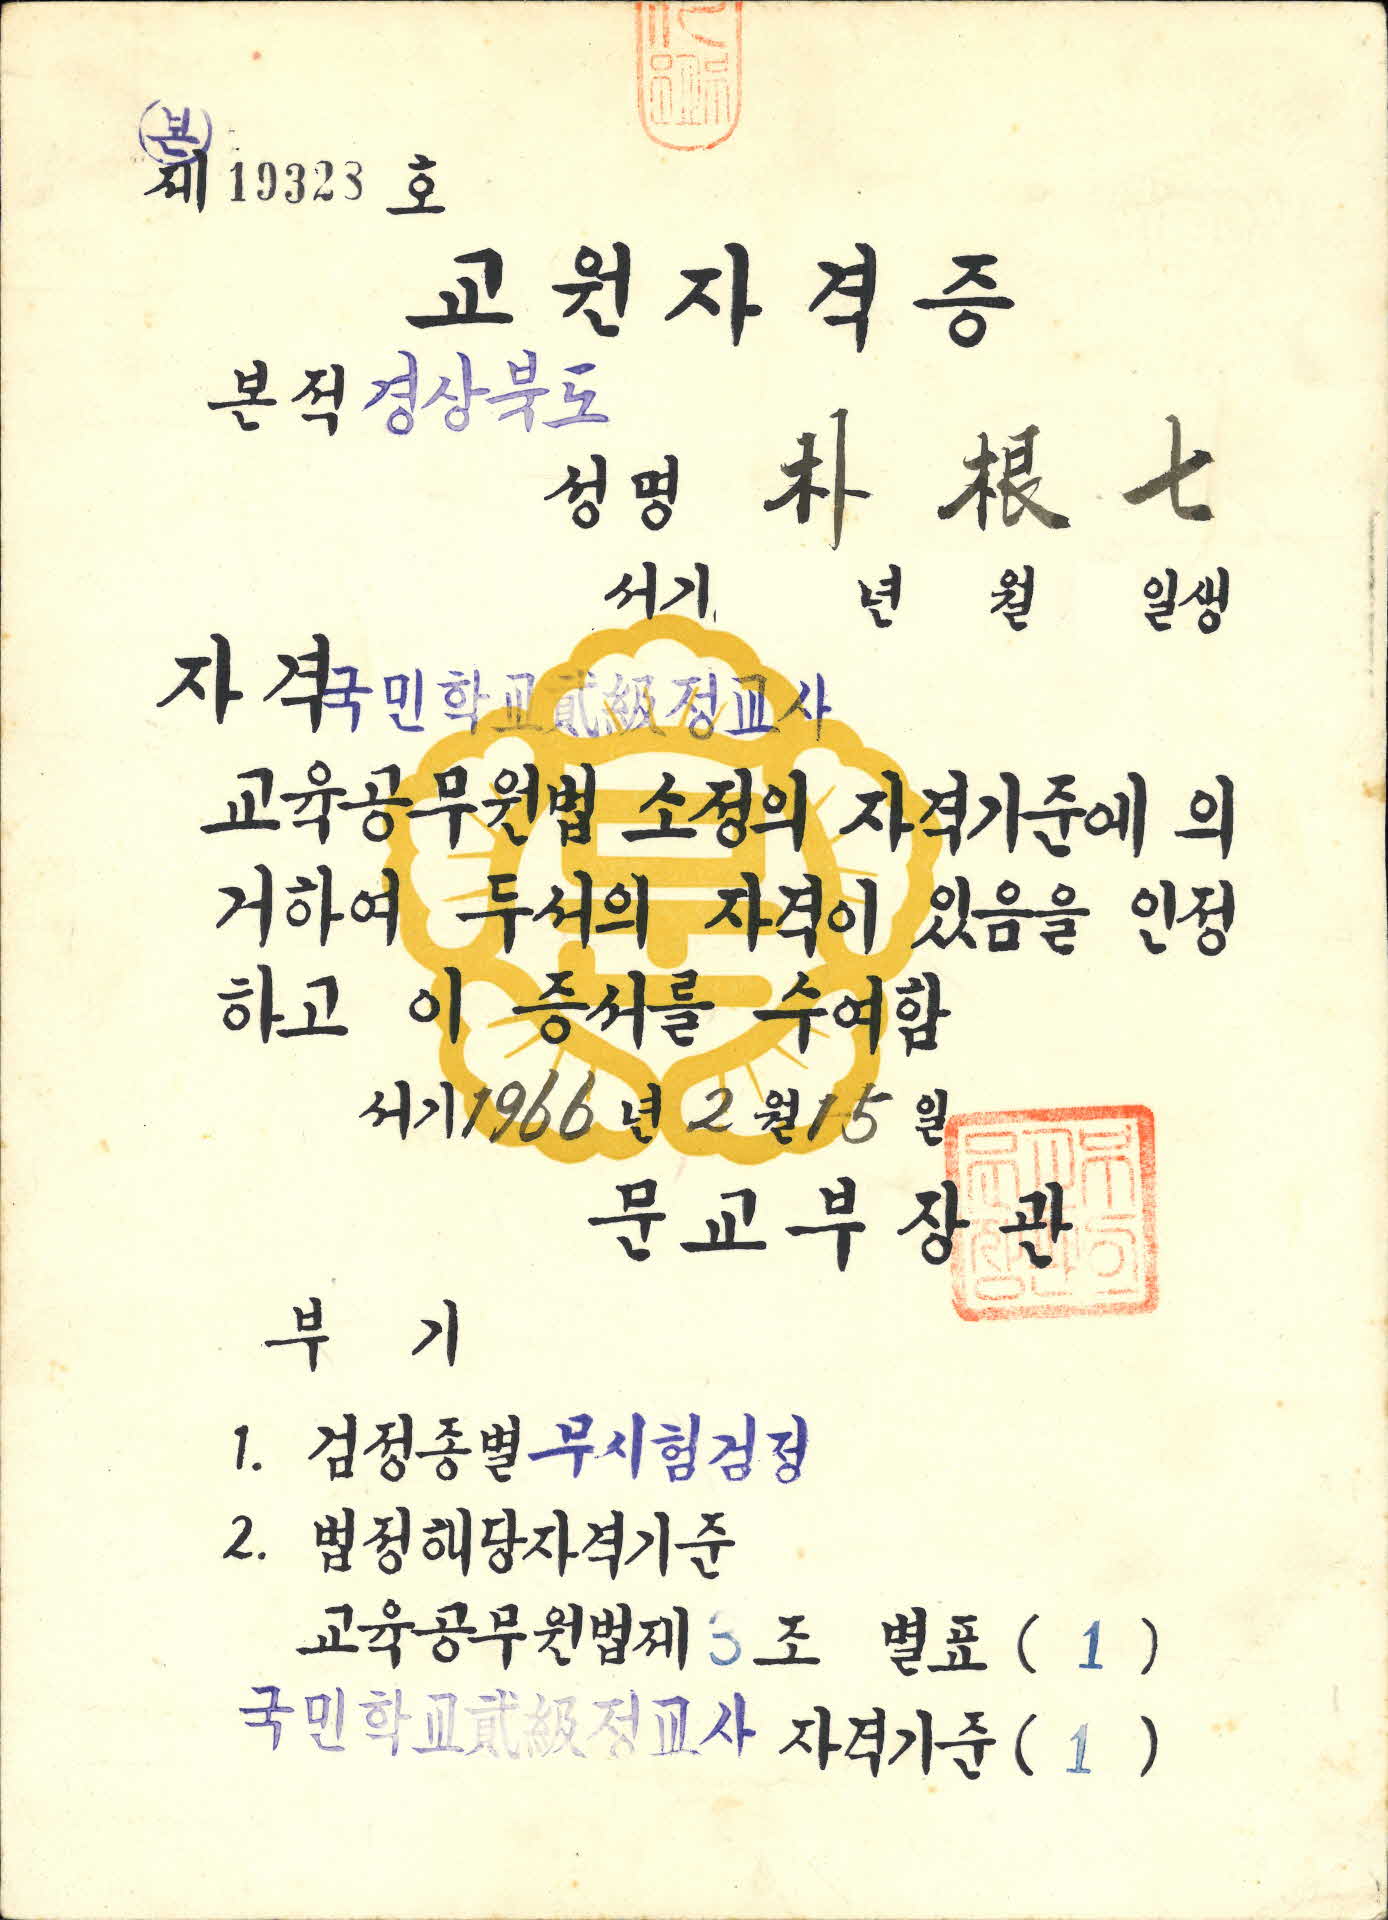 본
제 19328 호
교원자격증
본적 경상북도
성명 朴根七
서기 년 월 일생
자격 국민학교貳級정교사
교육공무원법 소정의 자격기준에 의
거하여 두서의 자격이 있음을 인정
하고 이 증서를 수여함
서기 1966 년 2 월 15 일
문교부장관
부 기
1. 검정종별 무시험검정
2. 법정해당자격기준
교육공무원법제 3 조 별표 ( 1 )
국민학교貳級정교사 자격기준 ( 1 )